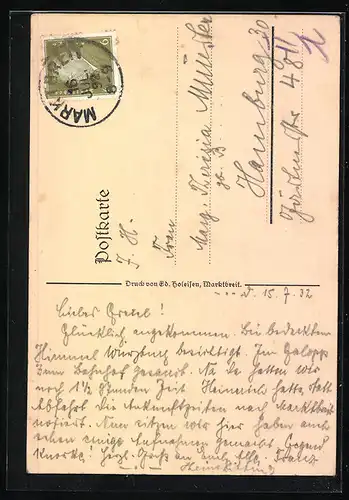 MARKTBREIT
6
Postkarte
J. H.
Frau
Marg. Therezia Münster
Hamburg 30
48 II
Druck von Ed. Holeisen, Marktbreit.
d. 15.7.32
Liebes Gretel!
Glücklich angekommen. Bei bedecktem
Himmel Würzburg besichtigt. Im Galopp
zum Bahnhof gerannt. Na da hatten wir
noch 1½ Stunden Zeit. Heinrich hatte statt
Abfahrt die Ankunftzeiten nach Marktbreit
notiert. Nun sitzen wir hier haben auch
schon einige Aufnahmen gemacht.
Herzl. Gruß an Euch alle. Franz